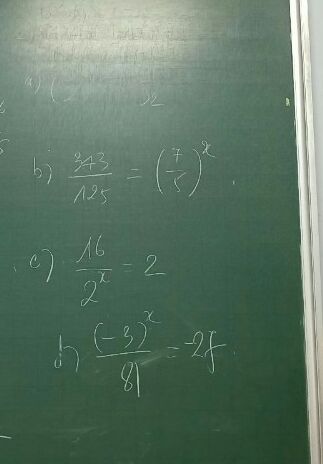 a) (
b) 343/125 = (7/5)^x
c) 16/2^x = 2
d) (-3)^x/81 = -27